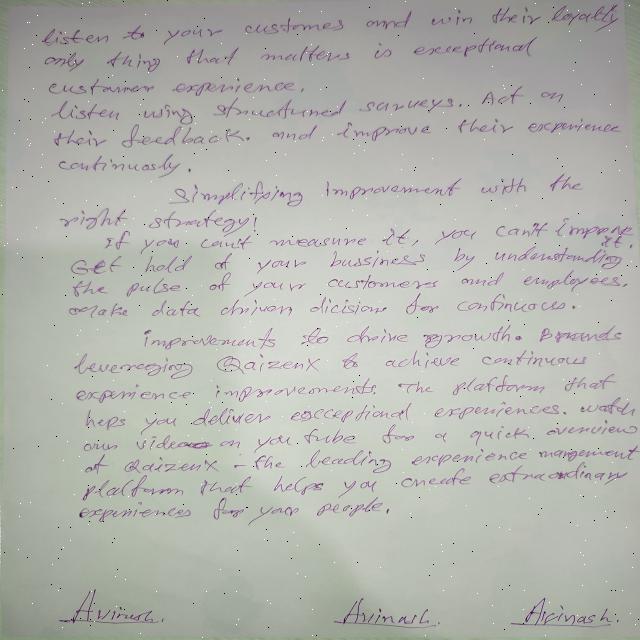 listen to your customes and win their loyally
only thing that matters is exceptional
customer experience.
listen using structured surveys. Act on
their feedback. and improve their experience
continuously.
Simplifying improvement with the
right strategy!
If you can't measure it, you can't improve it.
Get hold of your bussiness by understanding
the pulse of your customers and employees.
Make data driven dicision for continuous.
improvements to drive growth. Brands
leveraging QaizenX to achieve continuous
experience improvements. The platform that
heps you deliver exceptional experiences. watch
our video on you tube for a quick overview
of QaizenX - the leading experience management
platform that helps you create extraordinary
experiences for your people.
Avinash. Avinash. Avinash.